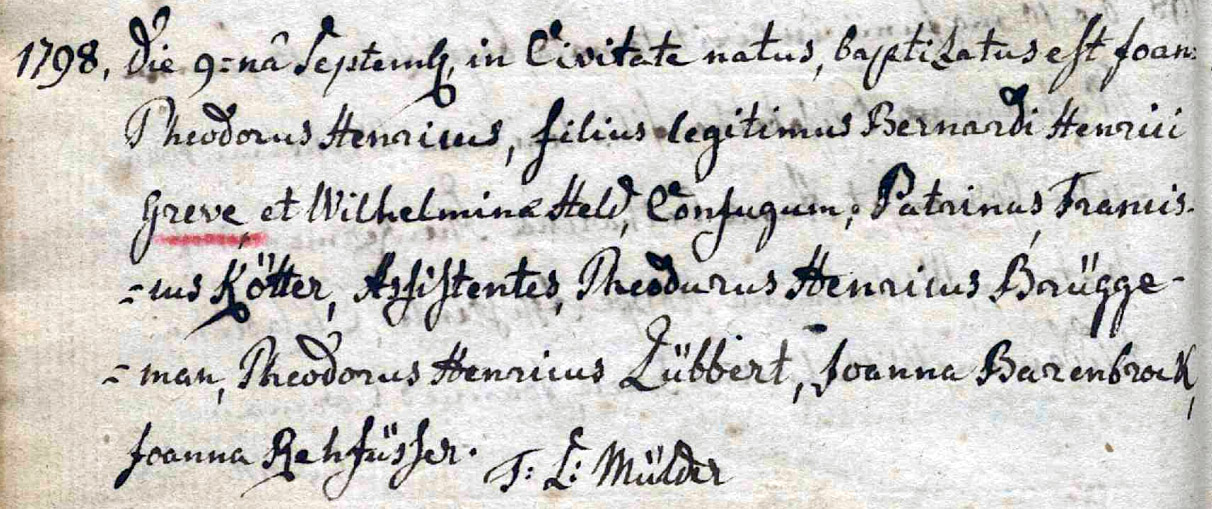 1798, Die 9=nâ Septemb, in Civitate natus, baptizatus est Joan:
Theodorus Henricus, filius legitimus Bernardi Henrici
Greve, et Wilhelminæ Held, Conjugum; Patrinus Francis-
=cus Kötter, Assistentes, Theodurus Henricus Brügge-
=man, Theodorus Henricus Lübbert, Joanna Barenbrock,
Joanna Rehfüsser. T: L: Mülder